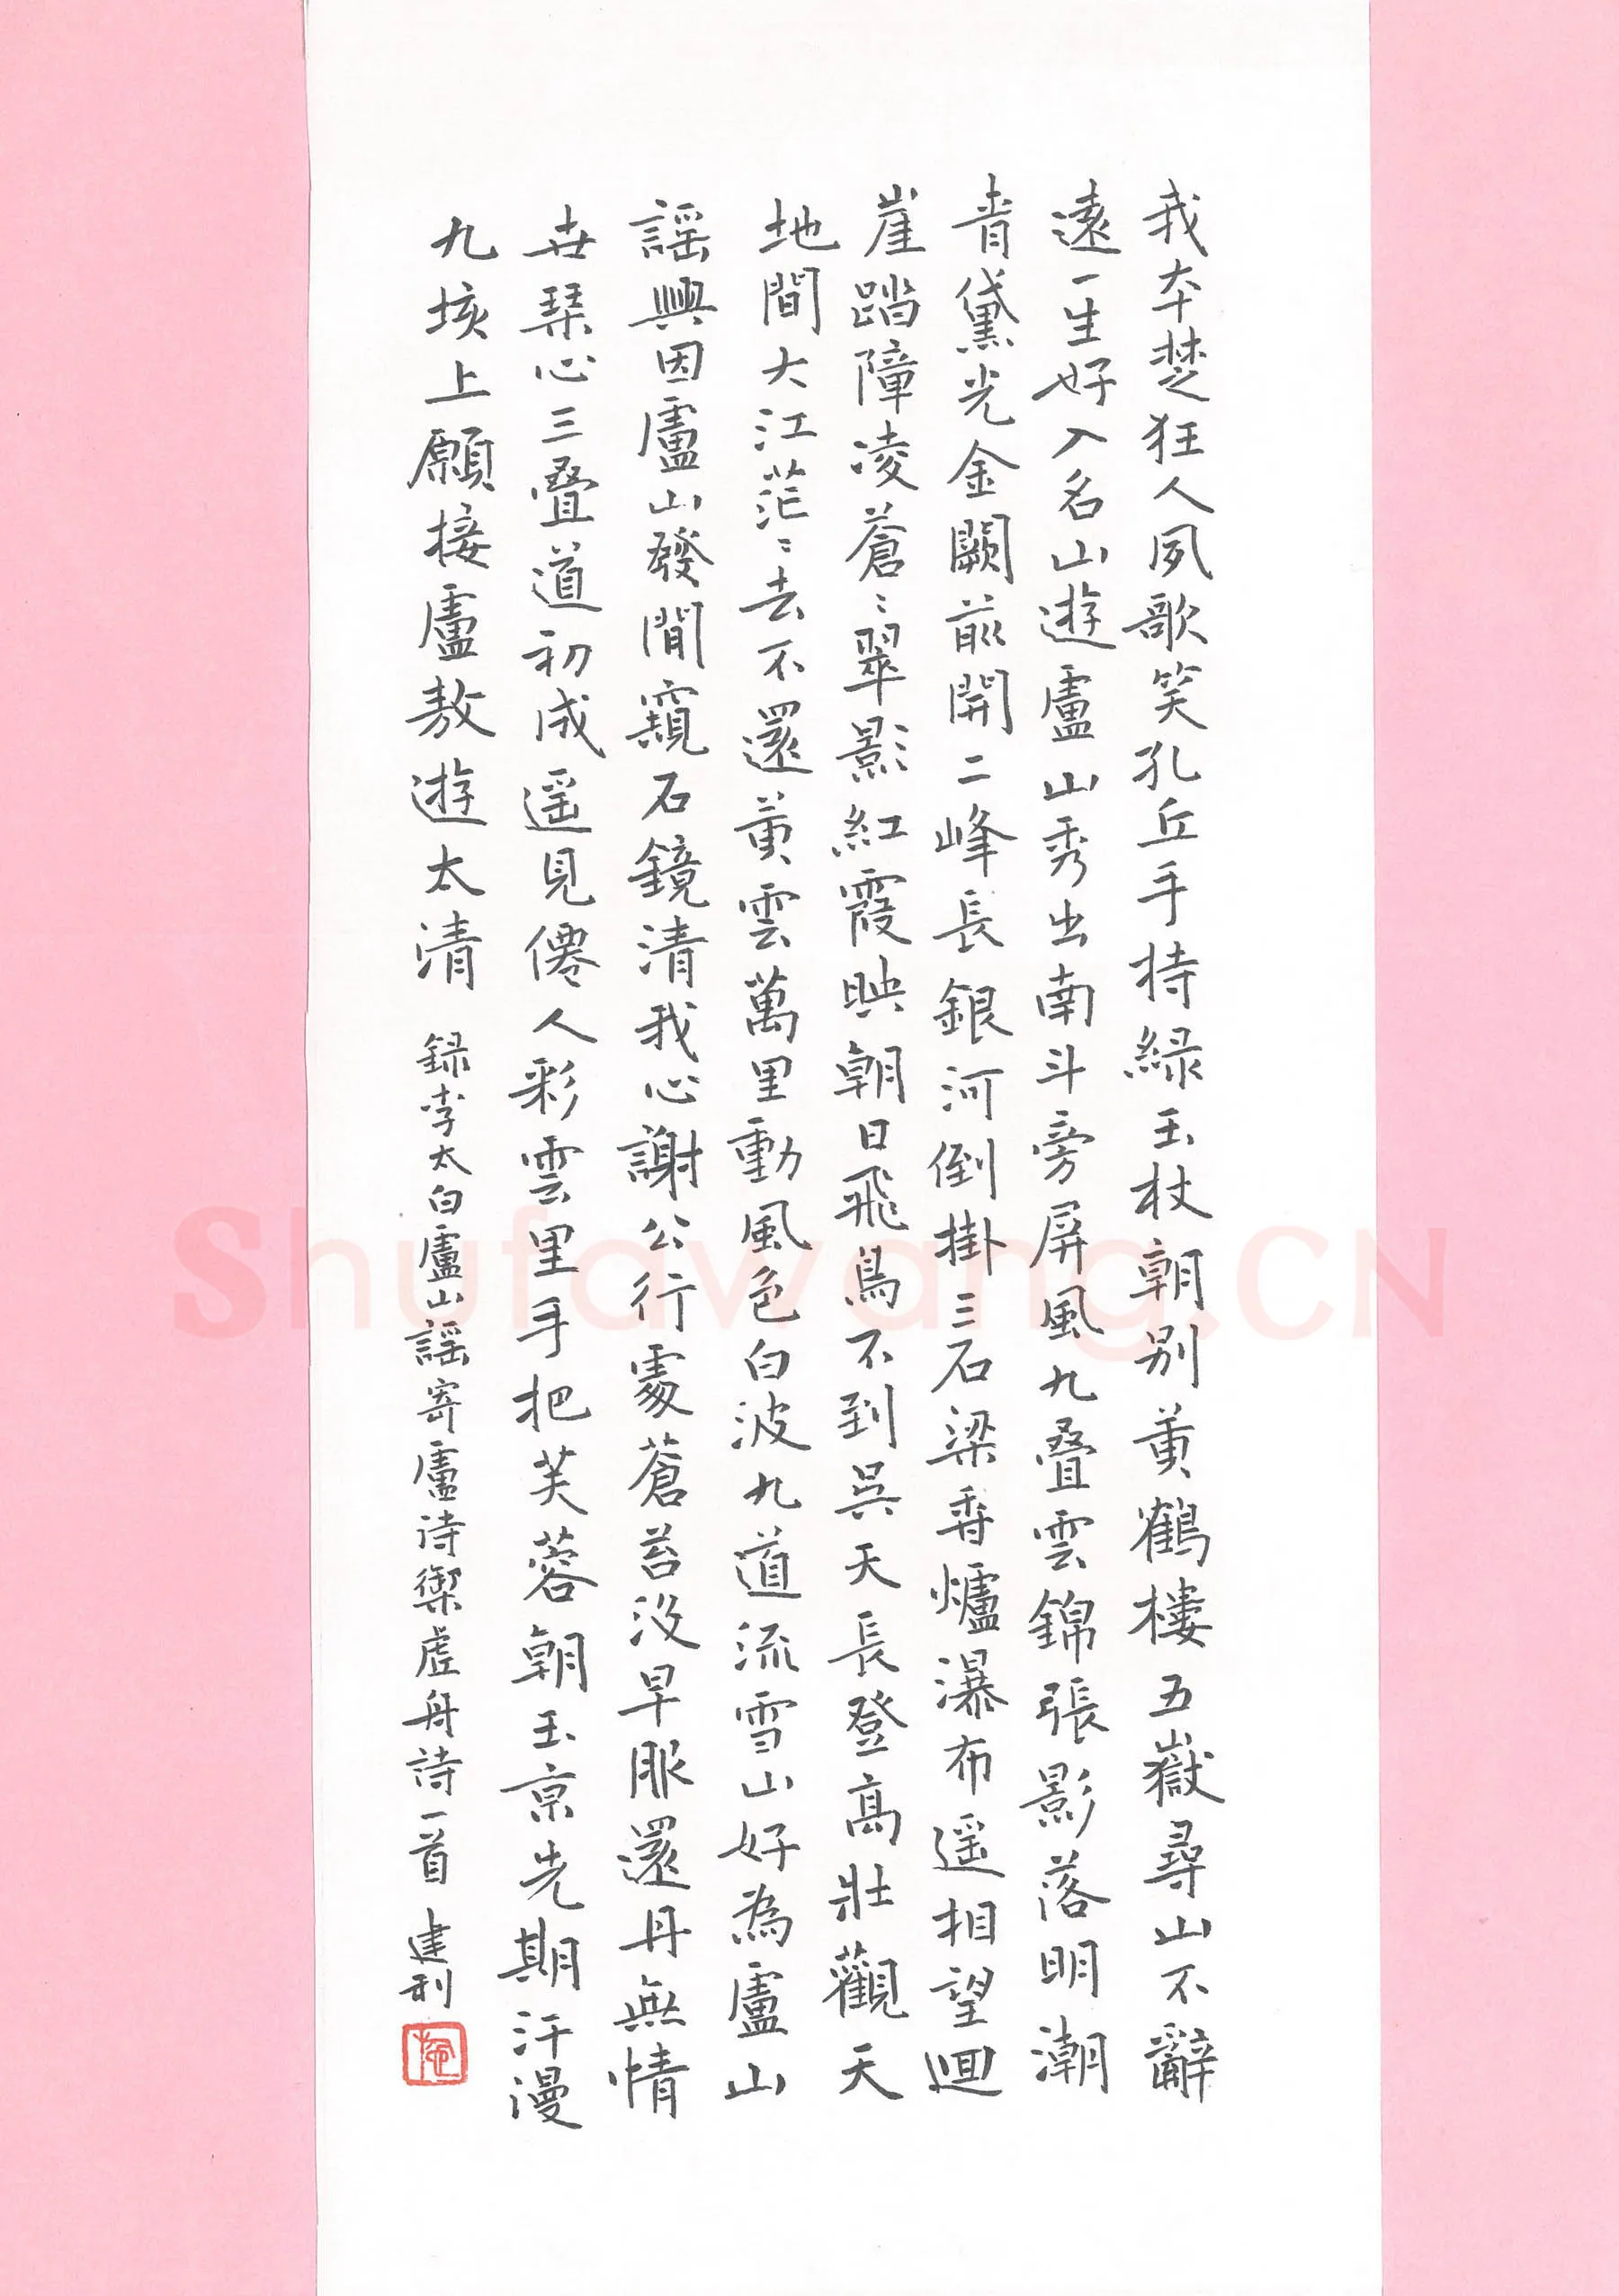 我本楚狂人夙歌笑孔丘手持綠玉杖朝別黄鶴樓五嶽尋山不辭
遠一生好入名山遊廬山秀出南斗旁屏風九叠雲錦張影落明潮
青黛光金闕前開二峰長銀河倒掛三石梁香爐瀑布遥相望迴
崖踏障凌蒼〻翠影紅霞映朝日飛鳥不到吳天長登高壯觀天
地間大江茫〻去不還黄雲萬里動風色白波九道流雪山好為廬山
謡興因廬山發閒窺石鏡清我心謝公行處蒼苔没早服還丹無情
世琹心三叠道初成遥見僊人彩雲里手把芙蓉朝玉京先期汗漫
九垓上願接盧敖遊太清
録李太白廬山謡寄盧詩禦虚舟詩一首 建利
Shufawang.CN